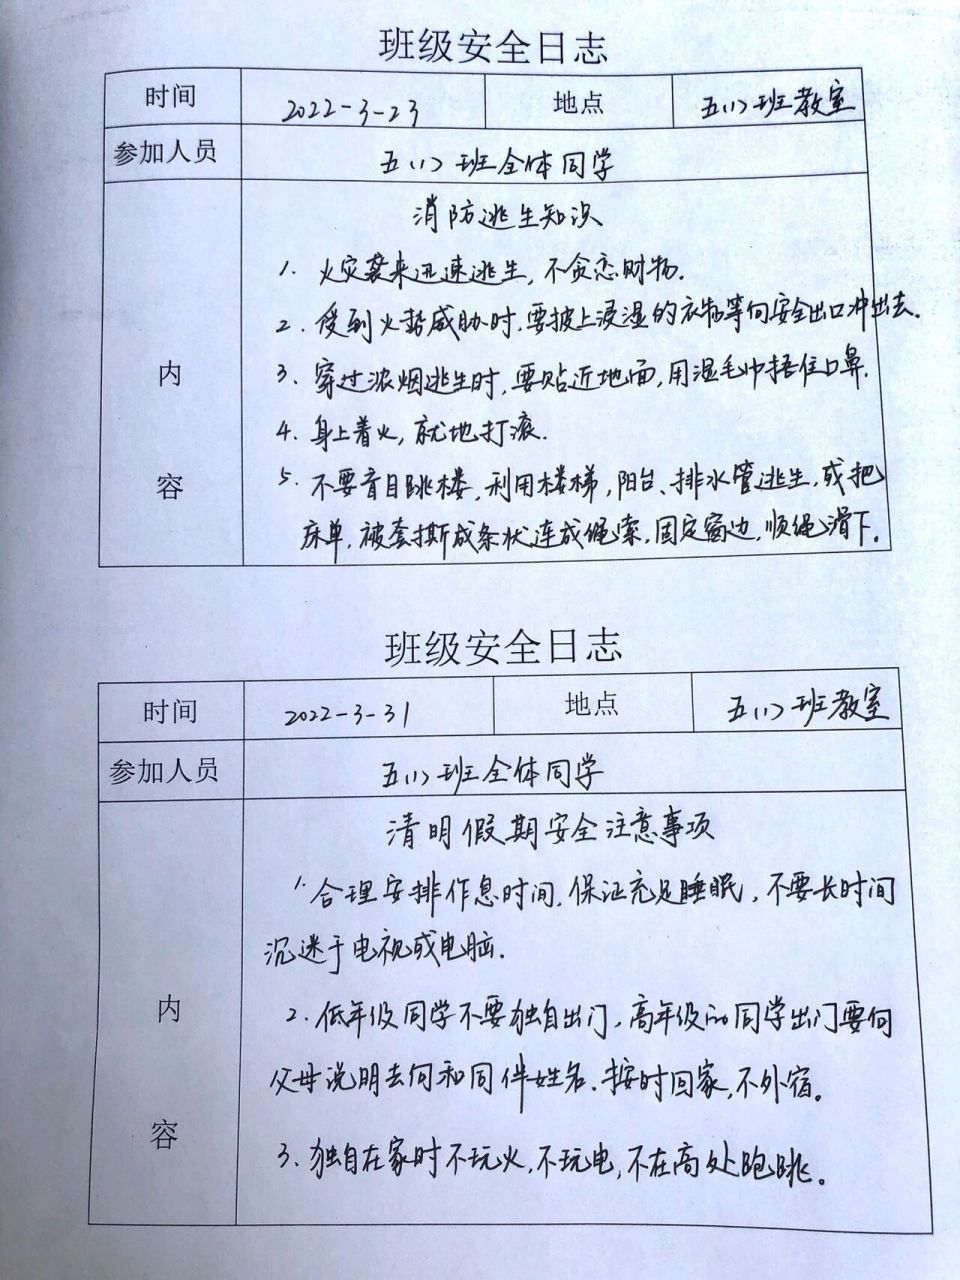 班级安全日志
时间 2022-3-23 地点 五(1)班教室
参加人员 五(1)班全体同学
消防逃生知识
1. 火灾袭来迅速逃生,不贪恋财物.
2. 受到火势威胁时,要披上浸湿的衣物等向安全出口冲出去.
内 3. 穿过浓烟逃生时,要贴近地面,用湿毛巾捂住口鼻.
4. 身上着火,就地打滚.
容 5. 不要盲目跳楼,利用楼梯,阳台、排水管逃生,或把
床单,被套撕成条状连成绳索,固定窗边,顺绳滑下。
班级安全日志
时间 2022-3-31 地点 五(1)班教室
参加人员 五(1)班全体同学
清明假期安全注意事项
1. 合理安排作息时间,保证充足睡眠,不要长时间
沉迷于电视或电脑.
内 2. 低年级同学不要独自出门,高年级的同学出门要向
父母说明去向和同伴姓名、按时回家,不外宿。
容 3、独自在家时不玩火,不玩电,不在高处跑跳。